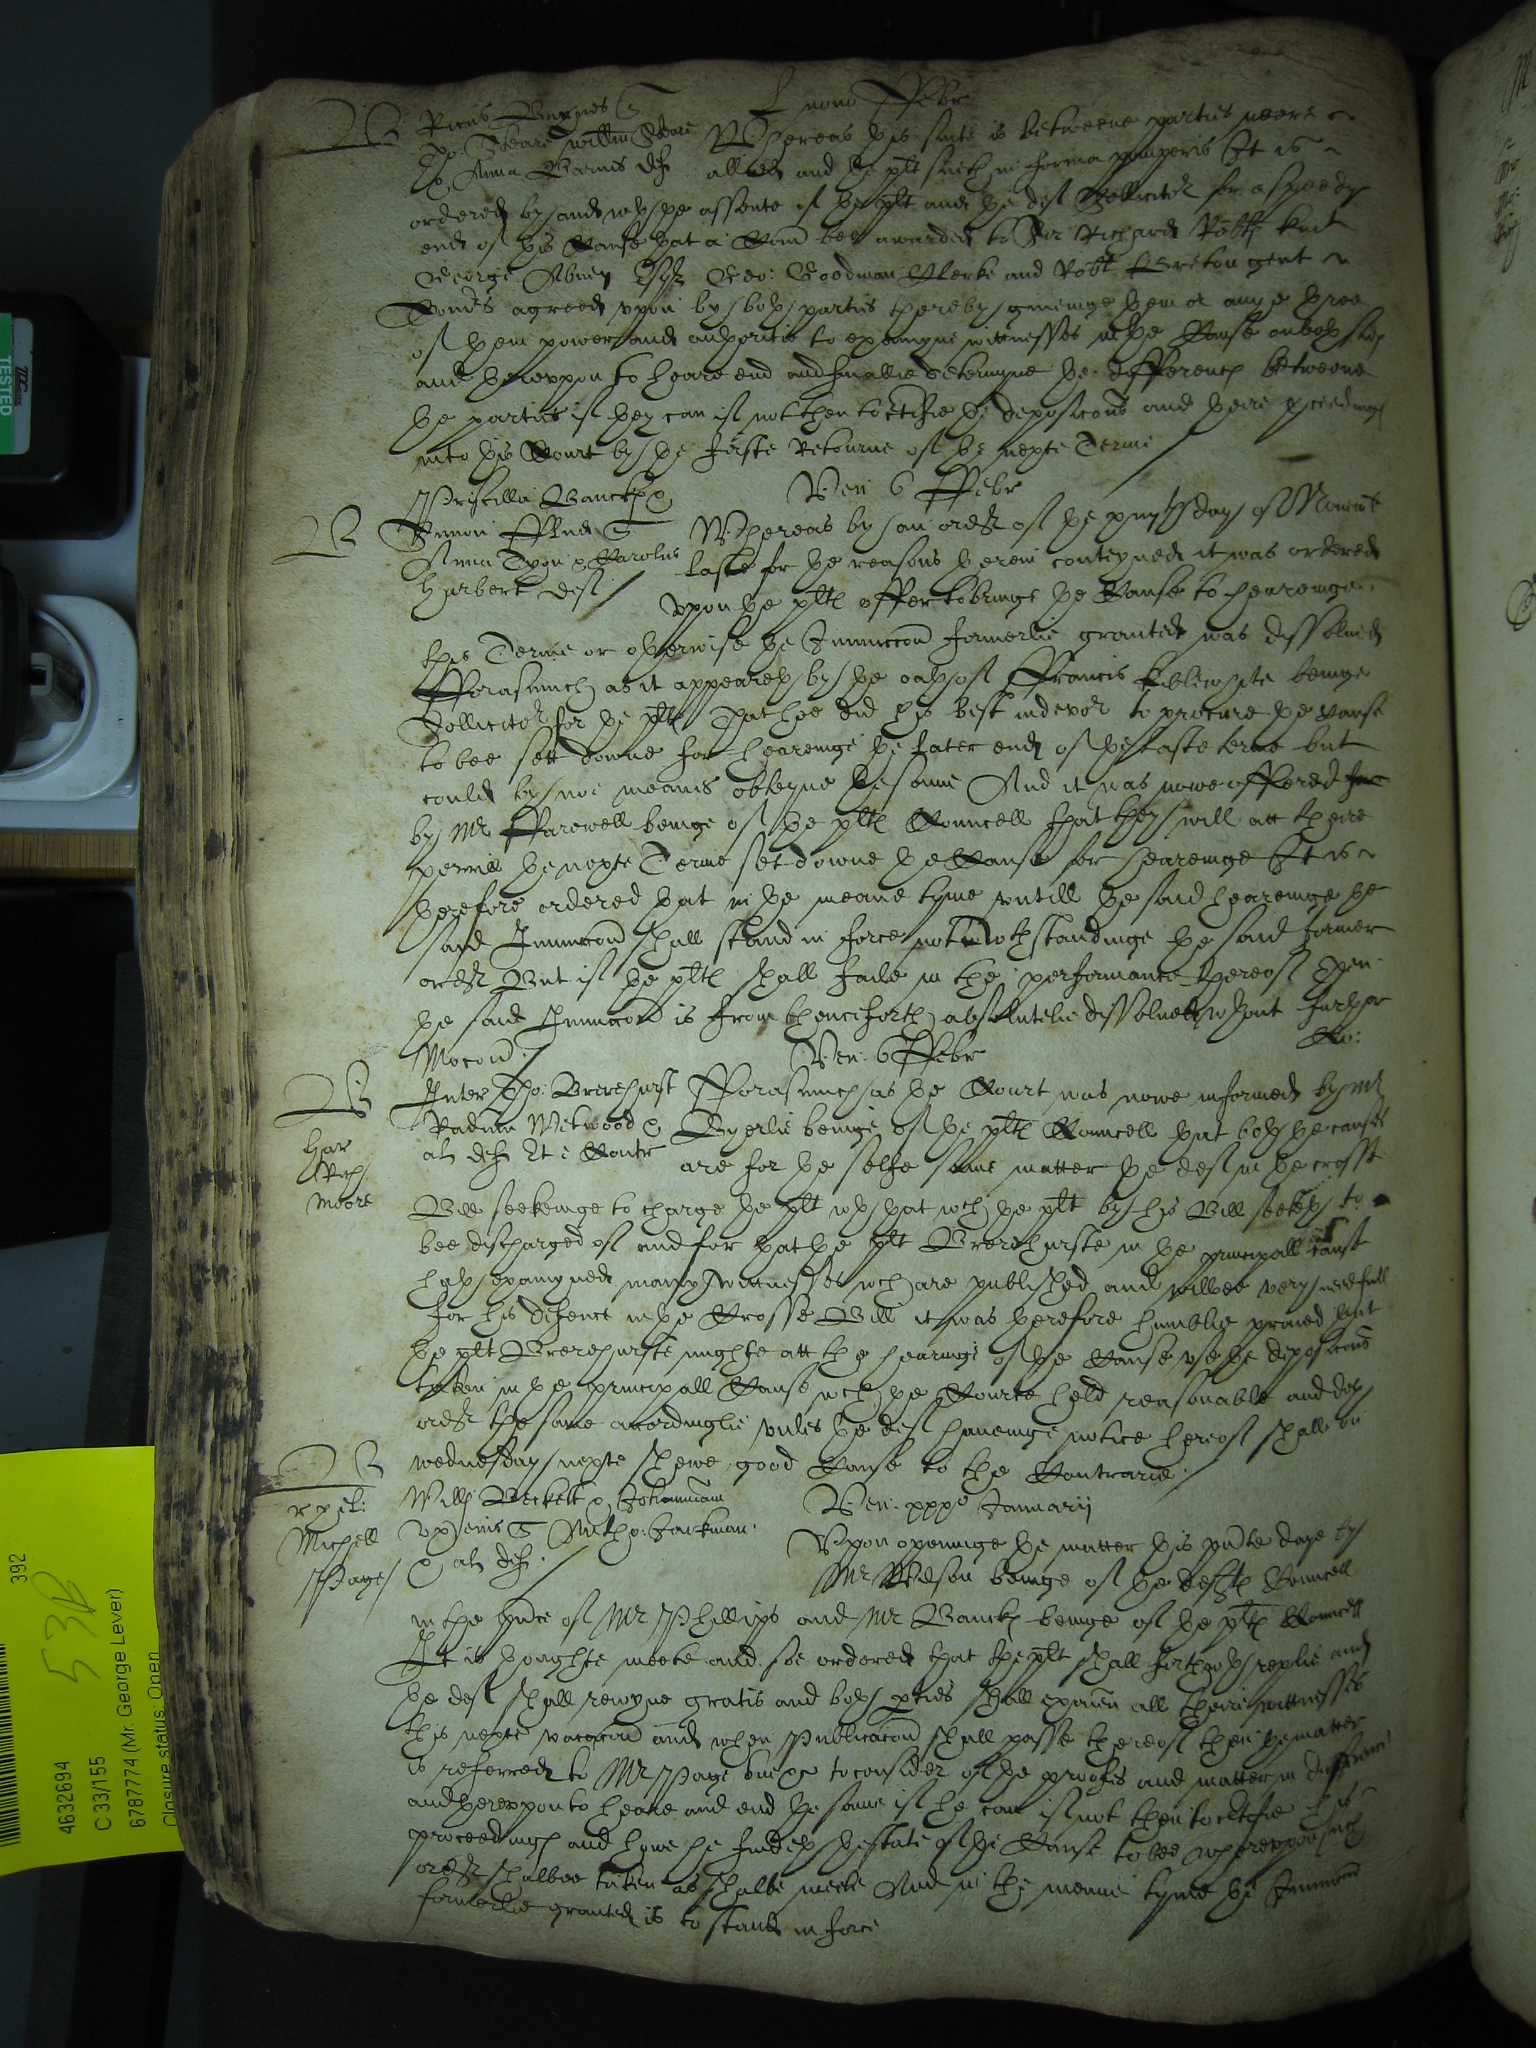 B Ricus Barnes
L nono Febr
Tho: Beare willm Beare Whereas this suite is betweene parties neere
& Anna Barnes def allied and the plt sueth in forma pauperis It is
ordered by and wth the assente of the plt and the def Sollicitor for a speedy
end of this Cause that a Com bee awarded to Sir Richard Robtℯ knt
George Abney Esqr Geo: Goodman Clerke and Robt Breton gent
Comrs agreed upon by both parties thereby giveinge them or anye three
of them power and authoritie to examyne wittnesses in the Cause on both sides
and thereuppon to heare end and finallie determyne the differences betweene
the parties if they can if not then to certifie the deposicons and theire proceedings
into this Court by the firste Retourne of the nexte Terme
Priscilla Banckℯ
Ven 6 Febr
B
Anna Tyon & Carolus Whereas by an order of the day of
Harbert def laste for the reasons therein conteyned it was ordered
uppon the pltℯ offer to bringe the Cause to heareinge
this Terme or otherwise the Iniunccon formerlie granted was dissolued
Forasmuch as it appeareth by the oath of Francis beinge
Sollicitor for the pltℯ That hee did his best indevor to procure the cause
to bee sett downe for heareinge the later end of the laste terme but
could by noe meanes obteyne the same And it was nowe offered
by Mr Farewell beinge of the pltℯ Councell that they will att theire
perrill the nexte Terme set downe the Cause for heareinge It is
therefore ordered that in the meane tyme untill the said heareinge the
said Iniunccon shall stand in force notwithstandinge the said former
order But if the pltℯ shall faile in the performance thereof then
the said Iniunccon is from thenceforth absolutelie dissolued wthout further
Mocon
Ven 6 Febr
Co:
B Inter Tho: Brerehurst Forasmuch as the Court was nowe informed by Mr
Radum Wetwood & Byerlie beinge of the pltℯ Councell that both the causes
al def Et e Contr are for the selfe same matter the def in the crosse
Har
Rich
Moore
Bill seekeinge to charge the plt wth that wch the plt by his Bill seeketh to
bee discharged of and for that the plt Brerehurste in the principall cause
hath examyned many wittnesses wch are published and wilbee very needfull
for his defence in the Crosse Bill it was therefore humblie praied that
the plt Brerehurste mighte att the hearinge of the Cause use the deposicons
taken in the principall Cause wch the Courte held reasonable and doth
order the same accordinglie unles the def haveinge notice hereof shall on
wednesday nexte shewe good Cause to the Contrarie
B
Michell
Page
Willi Beckett & Johannam
uxem eius Jackman
& al def
Ven xxxo Januarij
Uppon openinge the matter this pnte daye by
Mr Wilson beinge of the deftℯ Councell
in the hearinge of Mr Phillips and Mr Banckℯ beinge of the pltℯ Councell
It is thoughte meete and soe ordered that the plt shall forthwth replie and
the def shall reioyne gratis and both pties shall examen all theire wittnesses
this nexte vacacon and when Publicacon shall passe thereof then the matter
is referred to Mr Page to consider of the proofes and matter in difference
and thereuppon to heare and end the same if he can if not then to certifie his
proceedings and howe he findeth the state of the Cause to bee whereuppon such
order shalbee taken as shalbe meete And in the meane tyme the Iniunccon
formerlie granted is to stand in force
TESTED
392
53B
4632694
C 33/155
6787774 (Mr. George Lever)
Closure status: Open